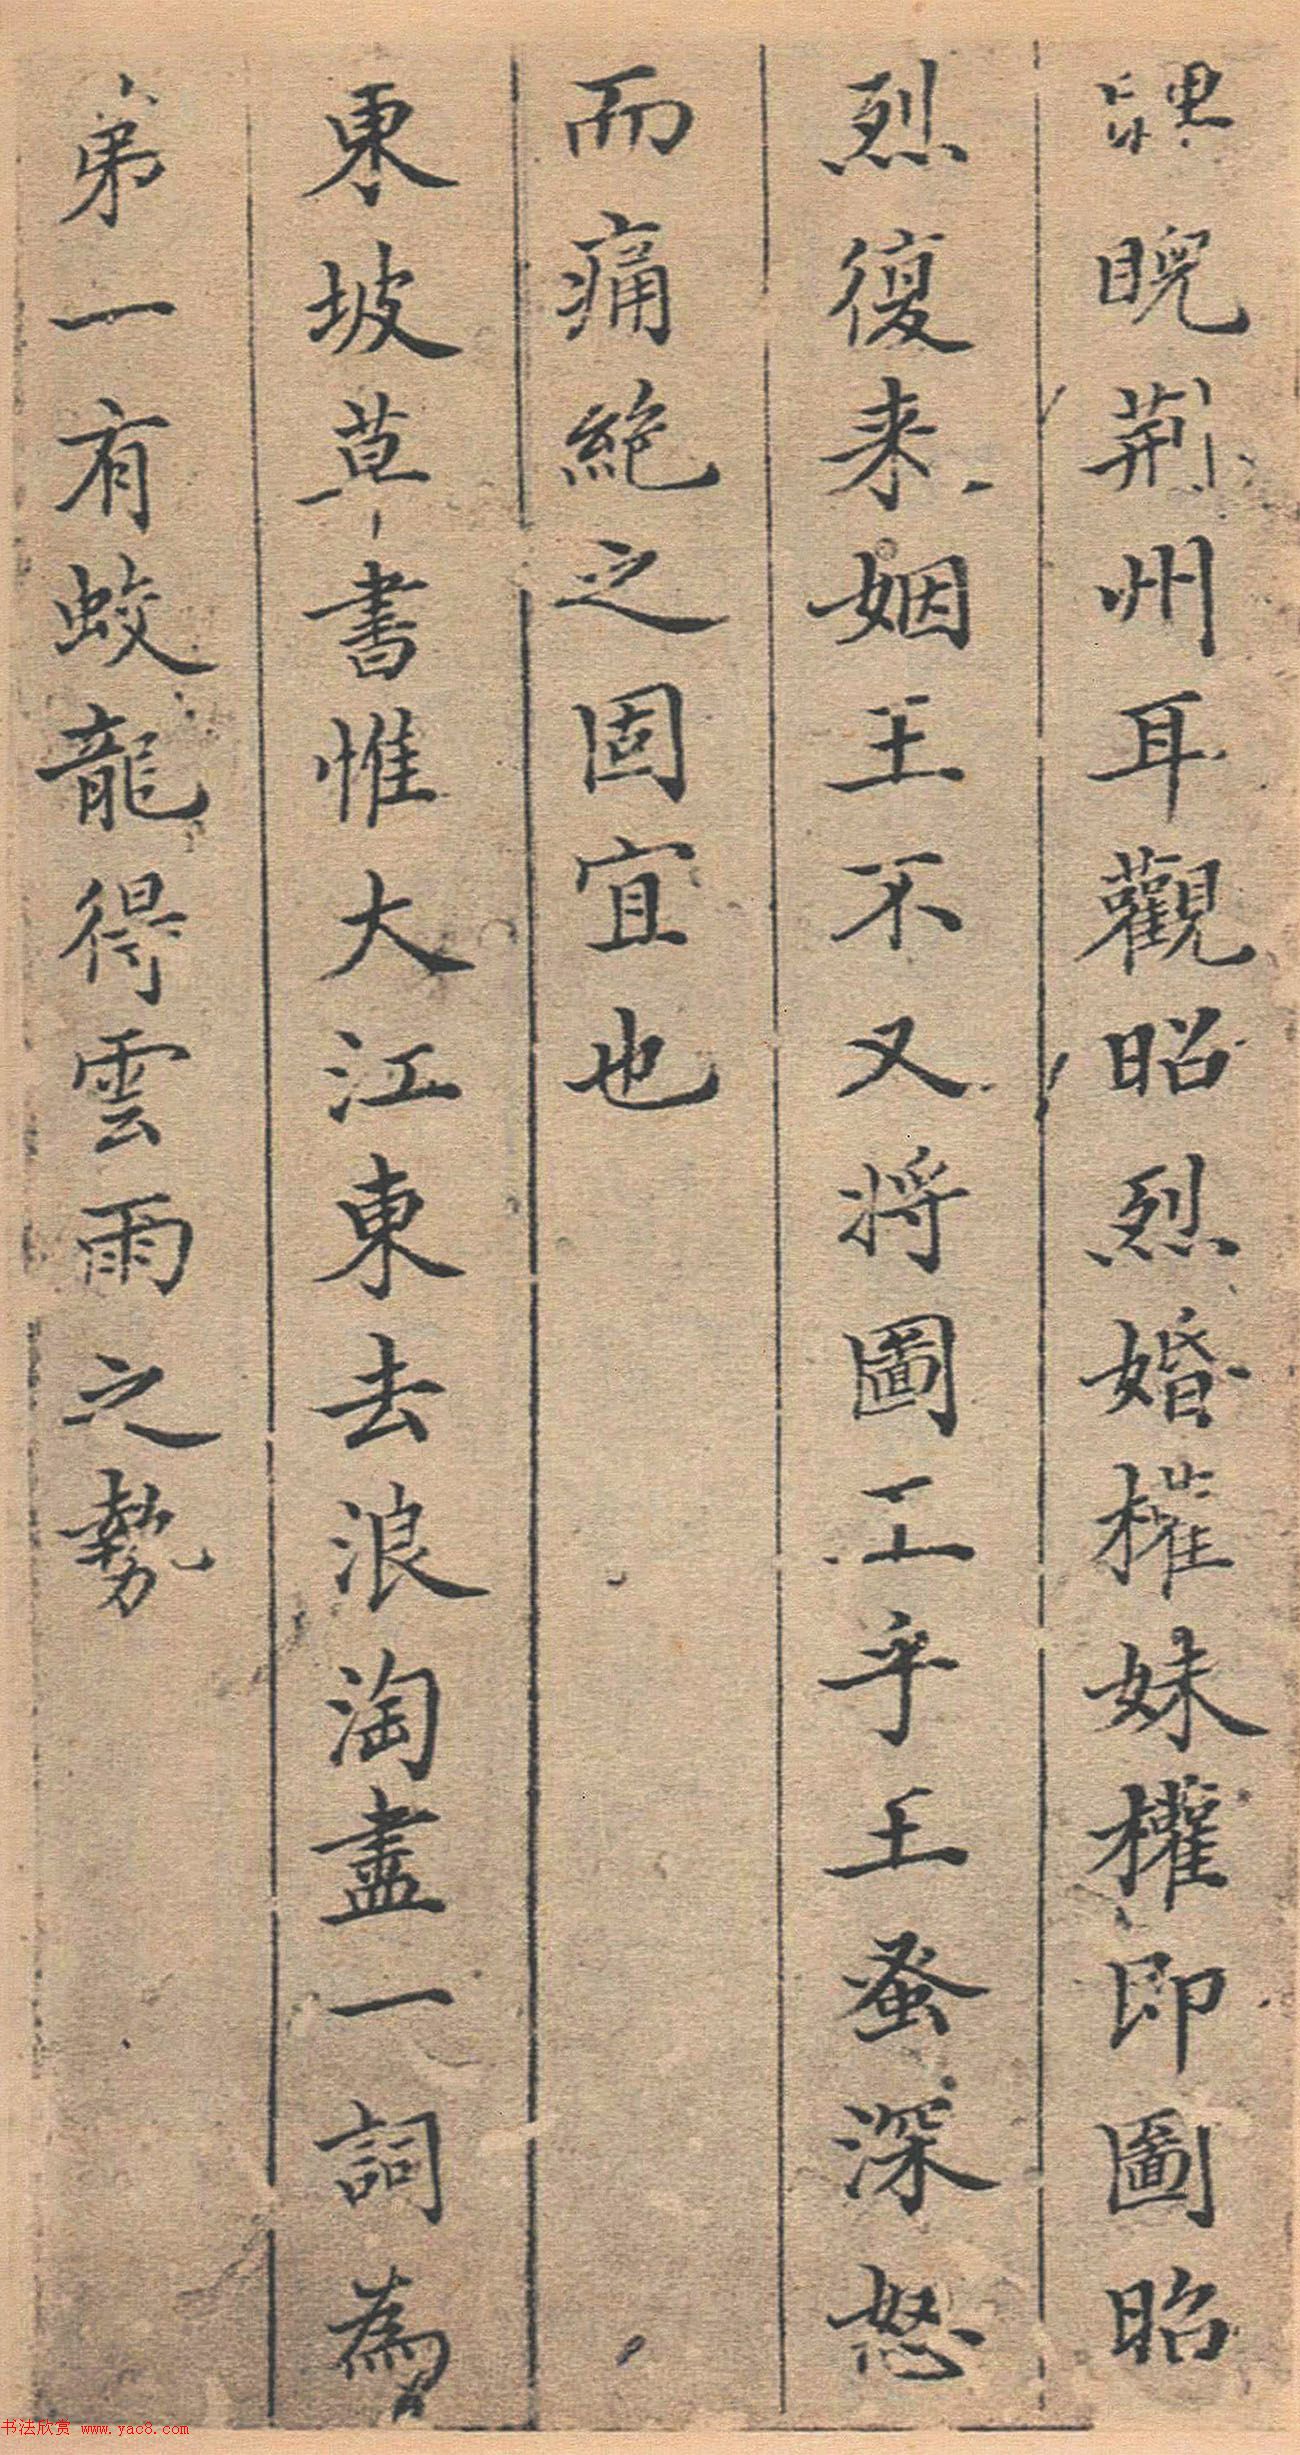 睨荊州耳觀昭烈婚權妹權即圖昭
烈復来姻王不又将圖工乎王蚤深怒
而痛絶之固宜也
東坡草書惟大江東去浪淘盡一詞為
弟一有蛟龍得雲雨之勢
书法欣赏 www.yac8.com